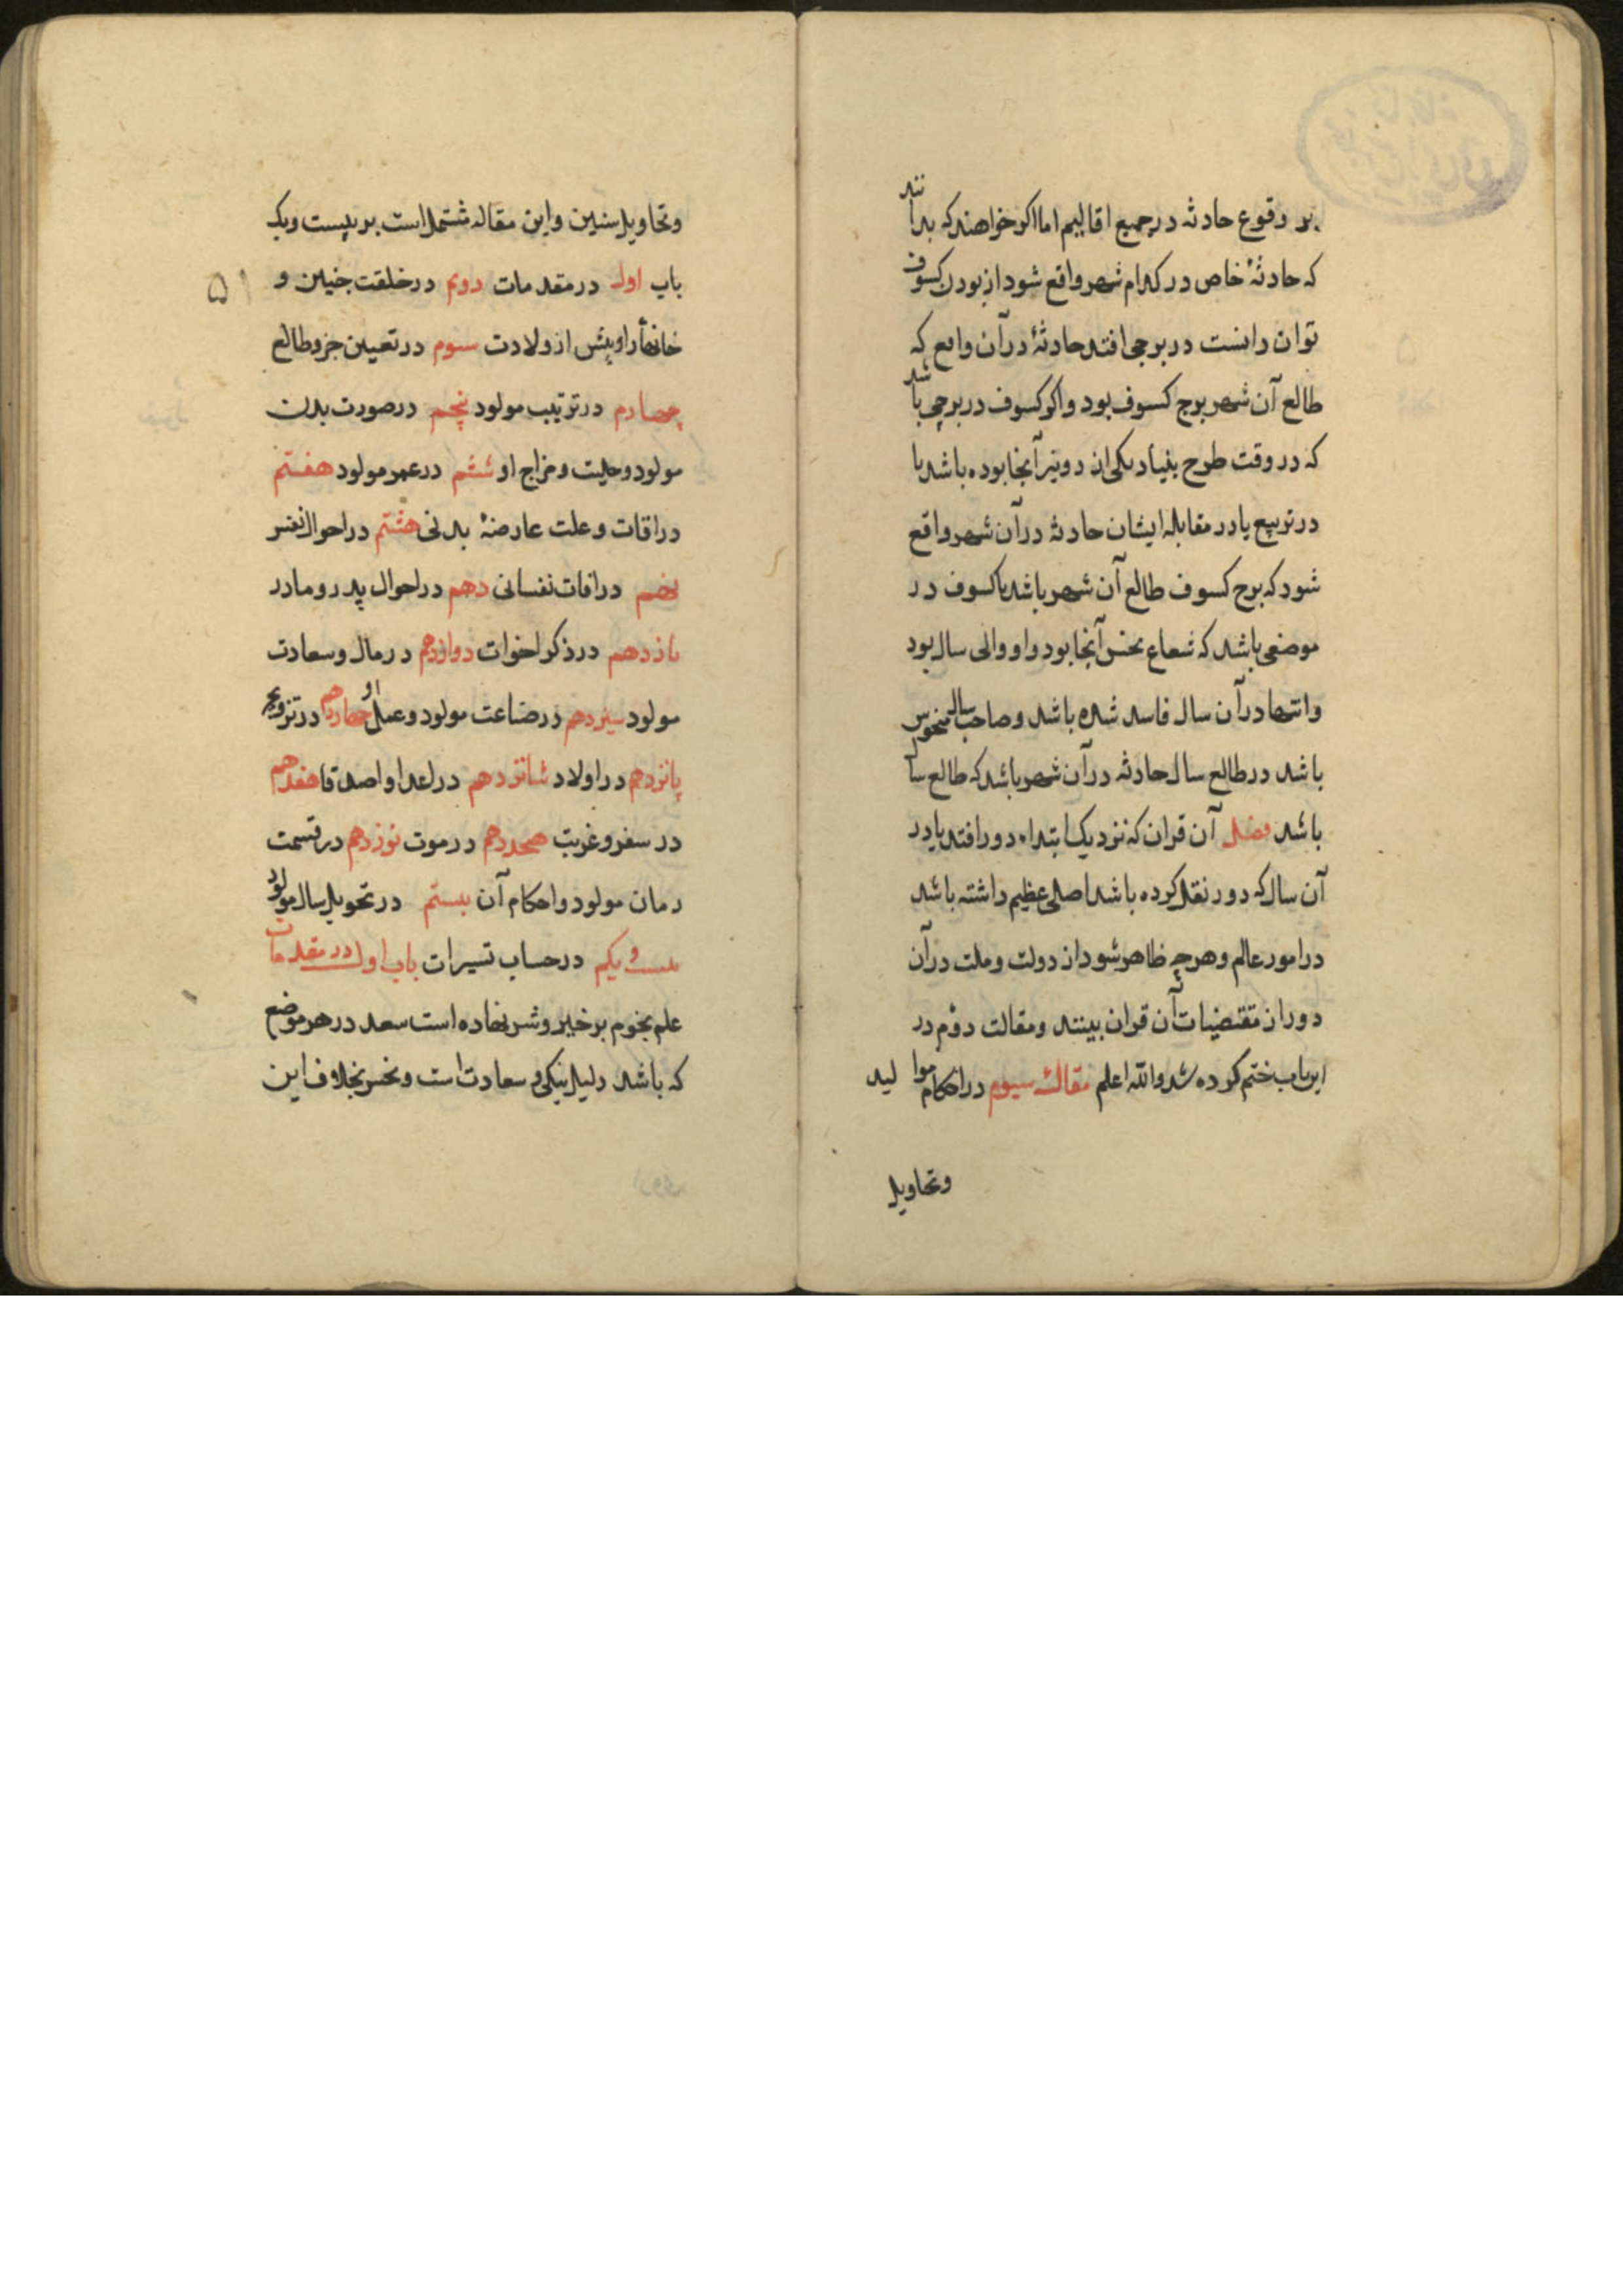 بر وقوع حادثه در جمیع اقالیم اما اکر خواهند که بدانند
که حادثهٔ خاص در کدام شهر واقع شود از بودن کسوف
توان دانست در برجی افتد حادثهٔ در آن واقع که
طالع آن شهر برج کسوف بود و اکر کسوف در برجی باشد
که در وقت طرح بنیاد یکی ان دو نیر آنجا بوده باشد یا
در تربیع یا در مقابله ایشان حادثه در آن شهر واقع
شود که برج کسوف طالع آن شهر باشد یا کسوف در
موضعی باشد که شعاع نحس آنجا بود و او والی سال بود
و انتها در آن سال فاسد شده باشد و صاحب سال منحوس
باشد در طالع سال حادثه در آن شهر باشد که طالع سال
باشد فصل آن قران که نزدیک ابتداء دور افتد یا در
آن سال که دور نقل کرده باشد اصلی عظیم داشته باشد
در امور عالم و هرچه ظاهر شود از دولت و ملت در آن
دوران مقتضیات آن قران بینند و مقالت دؤم در
این باب ختم کرده شد والله اعلم مقالهٔ سیوم در احکام موالید
وتحاویل
وتحاویل سنین و این مقاله مشتمل است بر بیست و یک
باب اول در مقدمات دویم در خلقت جنین و
۵۱
خانهٔا را و پیش از ولادت سوم در تعیین جزو طالع
چهارم در ترتیب مولود پنجم در صورت بدن
مولود وحلیت و مزاج او ششم در عمر مولود هفتم
در افات و علت عارضهٔ بدنی هشتم در احوال نفس
نهم در افات نفسانی دهم در احوال پدر و مادر
یازدهم در ذکر اخوات دوازدهم در مال و سعادت
مولود سیزدهم در صناعت مولود و عمل او چهاردهم در تزویج
پانزدهم در اولاد شانزدهم در اعدا و اصدقا هفدهم
در سفر و غربت هجدهم در موت نوزدهم در قسمت
زمان مولود و احکام آن بیستم در تحویل سال مولود
بیست و یکم در حساب تسیرات باب اول در مقدمات
علم نجوم بر خیر و شر نهاده است سعد در هر موضع
که باشد دلیل نیکی و سعادت است و نحس بخلاف این